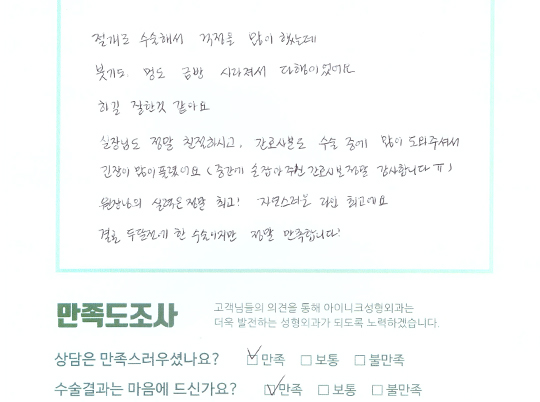 절개로 수술해서 걱정을 많이 했는데
붓기도 멍도 금방 사라져서 다행이었어요
하길 잘한것 같아요
실장님도 정말 친절하시고, 간호사분도 수술 중에 많이 도와주셔서
긴장이 많이 풀렸어요 (중간에 손잡아주신 간호사님 정말 감사합니다 ㅠ)
원장님의 실력은 정말 최고! 자연스러운 라인 최고예요
결론 두달전에 한 수술이지만 정말 만족합니다!
만족도조사
고객님들의 의견을 통해 아이니크성형외과는
더욱 발전하는 성형외과가 되도록 노력하겠습니다.
상담은 만족스러우셨나요? ☑만족 □보통 □불만족
수술결과는 마음에 드신가요? ☑만족 □보통 □불만족